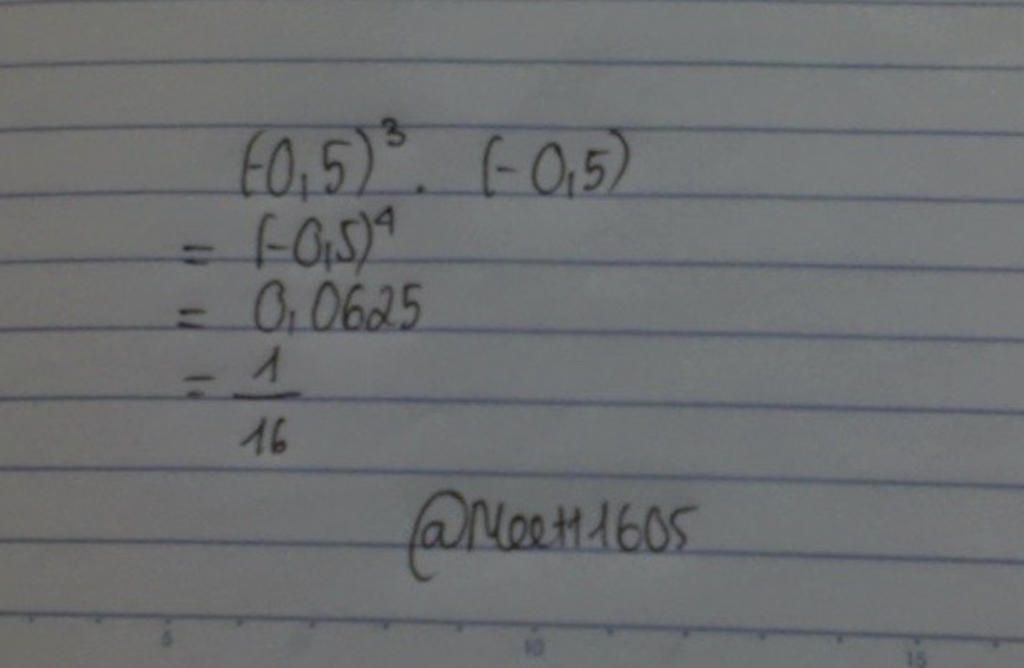 (-0,5)³ . (-0,5)
= (-0,5)⁴
= 0,0625
= 1/16
5 10 15